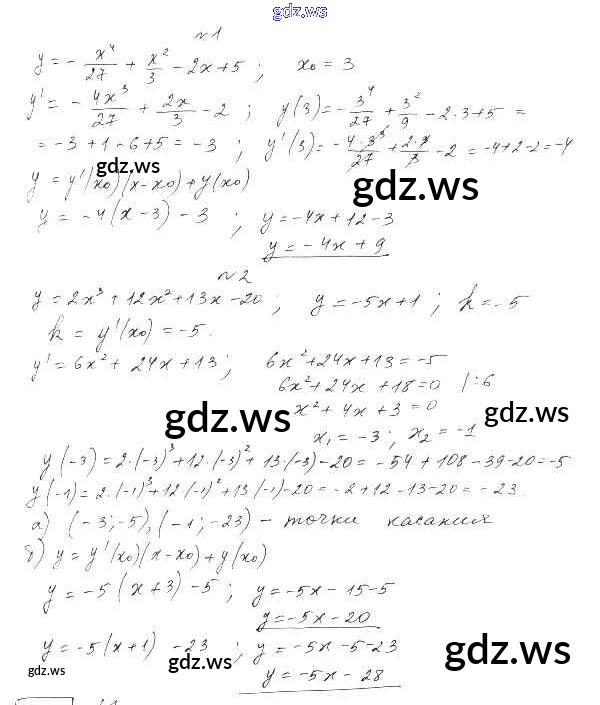 gdz.ws
№1
y = - x⁴/27 + x²/3 - 2x + 5 ; x₀ = 3
y' = - 4x³/27 + 2x/3 - 2 ; y(3) = - 3⁴/27 + 3²/9 - 2·3 + 5 =
= -3 + 1 - 6 + 5 = -3 ; y'(3) = - 4·3³/27 + 2·3/3 - 2 = -4+2-2 = -4
gdz.ws
y = y'(x₀)(x-x₀) + y(x₀)
gdz.ws
y = -4(x-3) - 3 ; y = -4x + 12 - 3
y = -4x + 9
№2
y = 2x³ + 12x² + 13x - 20 ; y = -5x + 1 ; k = -5
k = y'(x₀) = -5.
y' = 6x² + 24x + 13 ; 6x² + 24x + 13 = -5
6x² + 24x + 18 = 0 /:6
gdz.ws
x² + 4x + 3 = 0
gdz.ws
x₁ = -3 ; x₂ = -1
y(-3) = 2·(-3)³ + 12·(-3)² + 13·(-3) - 20 = -54 + 108 - 39 - 20 = -5
y(-1) = 2·(-1)³ + 12(-1)² + 13(-1) - 20 = -2 + 12 - 13 - 20 = -23.
а) (-3;-5), (-1;-23) - точки касания
б) y = y'(x₀)(x-x₀) + y(x₀)
y = -5(x+3) - 5 ; y = -5x - 15 - 5
y = -5x - 20
y = -5(x+1) - 23 ; y = -5x - 5 - 23
gdz.ws
gdz.ws
gdz.ws
y = -5x - 28